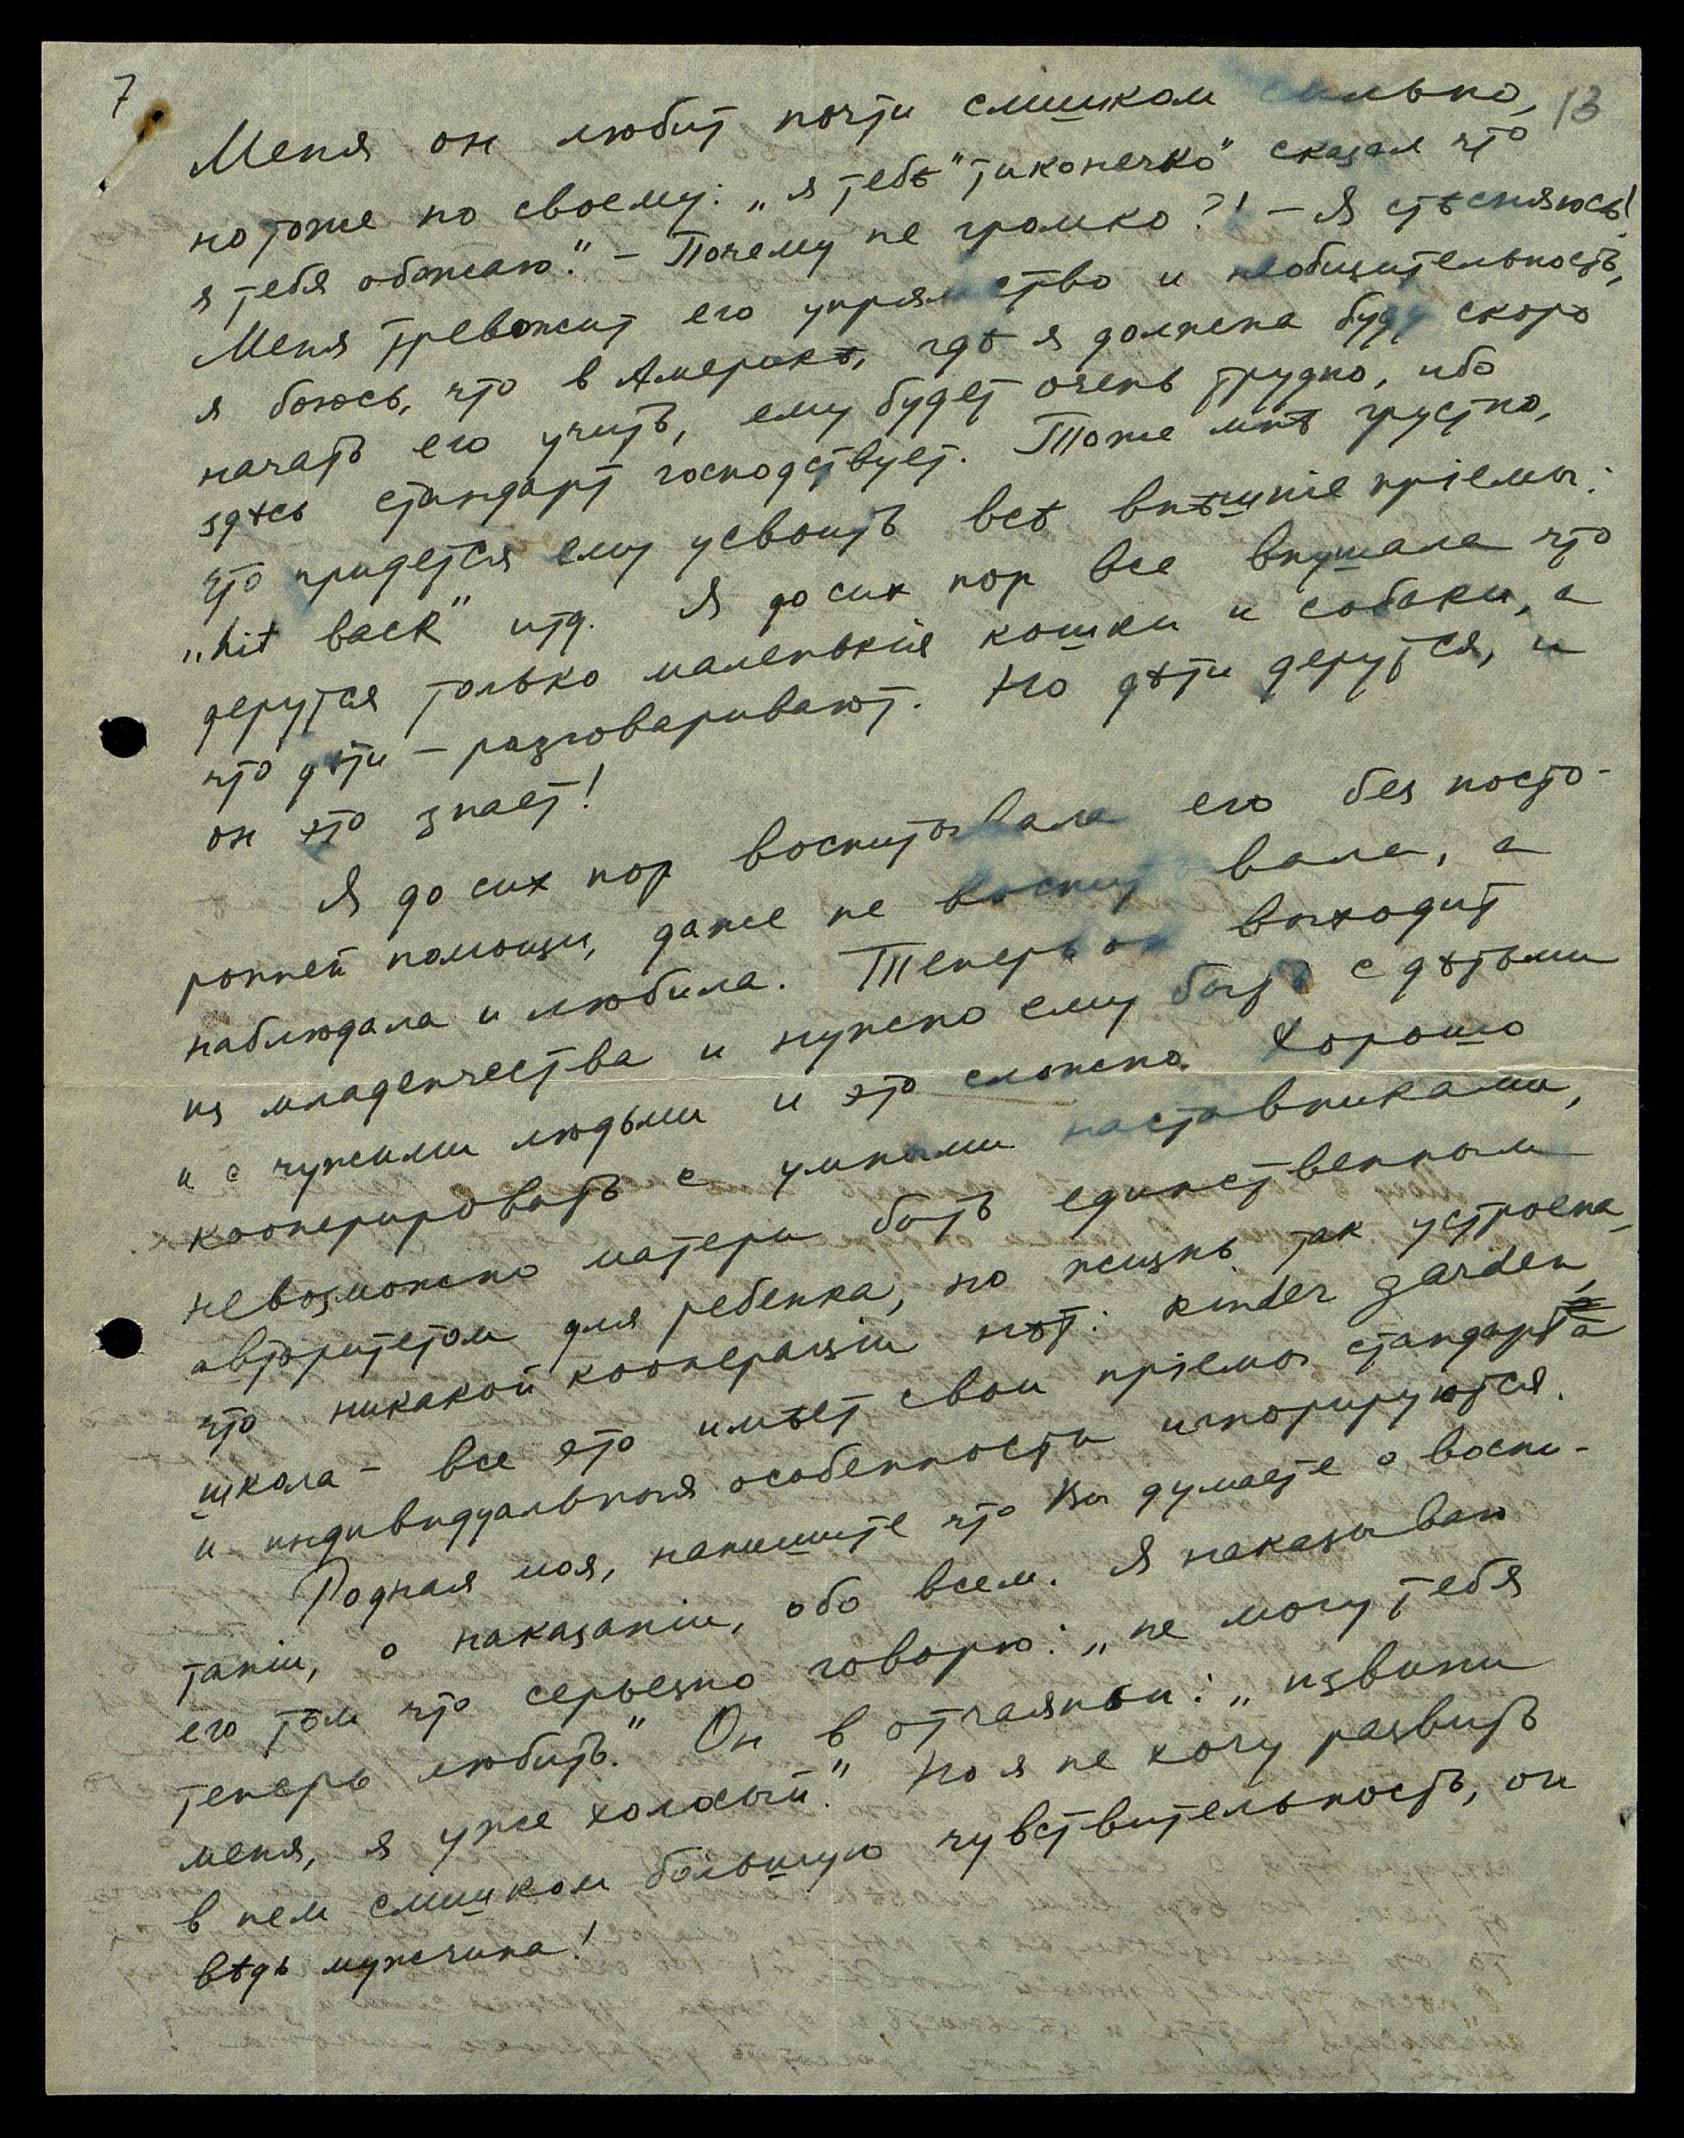 7
13
Меня он любит почти слишком сильно,
но тоже по своему: „я тебѣ "тихонечко" сказал что
я тебя обожаю." – Почему не громко?! – Я стѣсняюсь!
Меня тревожит его упрямство и необщительность,
я боюсь, что в Америкѣ, гдѣ я должна буду скоро
начать его учить, ему будет очень трудно, ибо
здѣсь стандарт господствует. Тоже мнѣ грустно,
что придется ему усвоить всѣ внѣшніе пріемы:
„hit back" итд. Я до сих пор все внушала что
дерутся только маленькія кошки и собаки, а
что дѣти – разговаривают. Но дѣти дерутся, и
он это знает!
Я до сих пор воспитывала его без посто-
ронней помощи, даже не воспитывала, а
наблюдала и любила. Теперь он выходит
из младенчества и нужно ему быть с дѣтьми
и с чужими людьми и это сложно. Хорошо
кооперировать с умными наставниками,
невозможно матери быть единственным
авторитетом для ребенка, но жизнь так устроена,
что никакой кооперации нѣт: kinder garden,
школа – все это имѣет свои пріемы стандарта
и индивидуальныя особенности игнорируются.
Родная моя, напишите что Вы думаете о воспи-
таніи, о наказаніи, обо всем. Я наказываю
его тѣм что серьезно говорю: „не могу тебя
теперь любить." Он в отчаяньи: „извини
меня, я уже холосый." Но я не хочу развить
в нем слишком большую чувствительность, он
вѣдь мужчина!